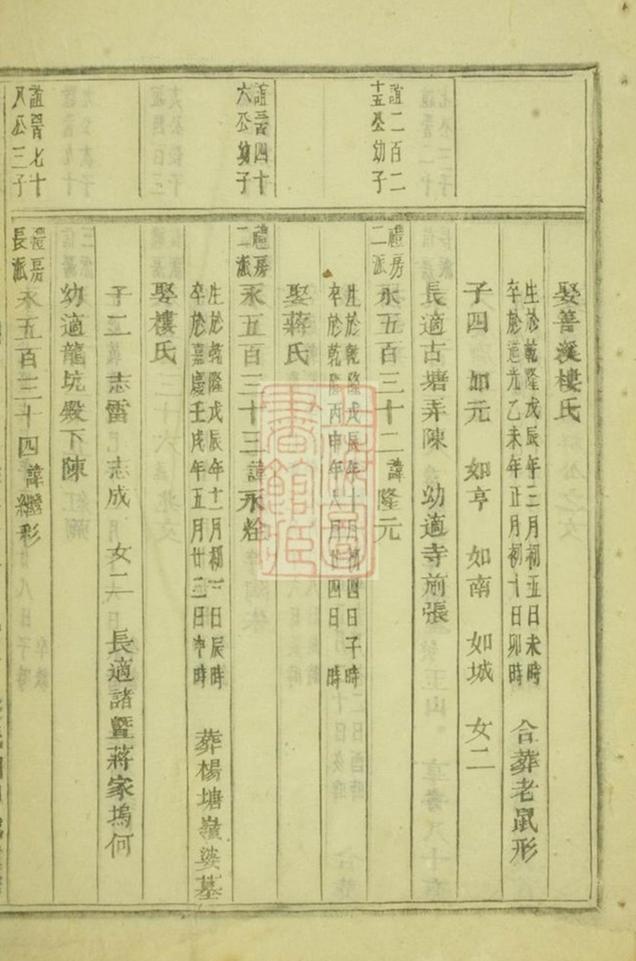 娶善溪樓氏
生於乾隆戊辰年三月初五日未時
卒於道光乙未年正月初十日卯時
合葬老鼠形
子四 如元 如亨 如南 如城 女二
長適古塘弄陳 幼適寺前張
誼二百二
十五公幼子
禮房
二派
永五百三十二諱隆元
生於乾隆戊辰年十月初四日子時
卒於乾隆丙申年八月廿四日 時
娶蔣氏
誼晉四十
六公幼子
禮房
二派
永五百三十三諱永栓
生於乾隆戊辰年十二月初一日辰時
卒於嘉慶壬戌年五月廿二日申時
葬楊塘嶺娑墓
娶樓氏
子二 志雷 志成 女二 長適諸暨蔣家塢何
幼適龍坑殿下陳
誼晉七十
八公三子
禮房
長派
永五百三十四諱繼形
書館